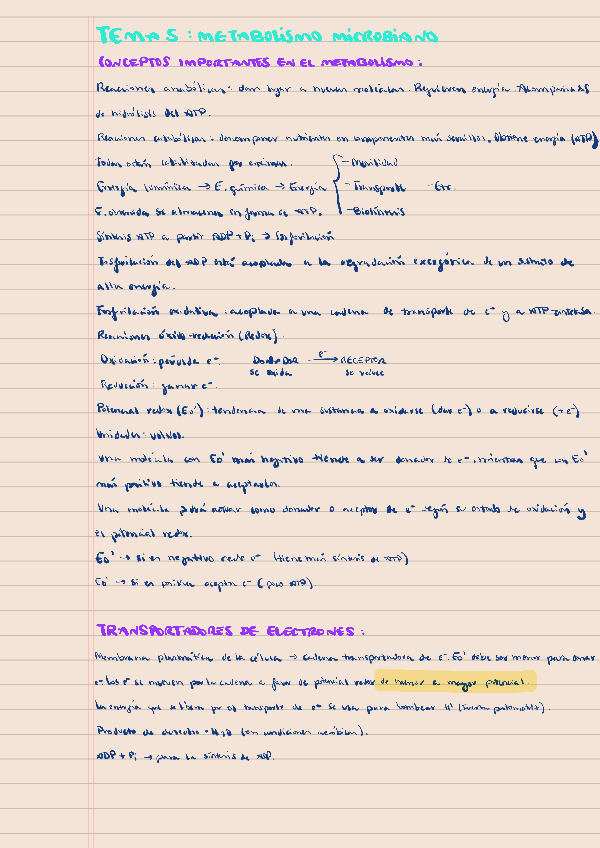 TEMA 5: METABOLISMO MICROBIANO
CONCEPTOS IMPORTANTES EN EL METABOLISMO:
Reacciones anabólicas: dan lugar a nuevas moléculas. Requieren energía. Acompañadas
de hidrólisis del ATP.
Reacciones catabólicas: descomponer nutrientes en componentes más sencillos. Obtiene energía (ATP)
Todas están catalizadas por enzimas.
Energía lumínica → E. química → Energía
- Movilidad
- Transporte - Etc.
- Biosíntesis
E. obtenida se almacena en forma de ATP.
Síntesis ATP a partir ADP + Pi → fosforilación
Fosforilación del ADP está acoplada a la degradación exergónica de un sustrato de
alta energía.
Fosforilación oxidativa: acoplada a una cadena de transporte de e- y a ATP-sintasa.
Reacciones óxido-reducción (Redox).
Oxidación: pérdida e-. DONADOR e- → RECEPTOR
se oxida se reduce
Reducción: ganar e-.
Potencial redox (E0'): tendencia de una sustancia a oxidarse (dar e-) o a reducirse (+ e-)
Unidades: voltios.
Una molécula con E0' más negativo tiende a ser donador de e-, mientras que un E0'
más positivo tiende a aceptarlos.
Una molécula podrá actuar como donador o aceptor de e- según su estado de oxidación y
el potencial redox.
E0' → si es negativo cede e- (tiene más síntesis de ATP)
E0' → si es positivo acepta e- (poco ATP).
TRANSPORTADORES DE ELECTRONES:
Membrana plasmática de la célula → cadena transportadora de e-. E0' debe ser menor para donar
e-. Los e- se mueven por la cadena a favor de potencial redox de menor a mayor potencial.
La energía que se libera por el transporte de e- se usa para bombear H+ (fuerza protomotriz).
Producto de desecho - H2O (en condiciones aerobias).
ADP + Pi → para la síntesis de ATP.